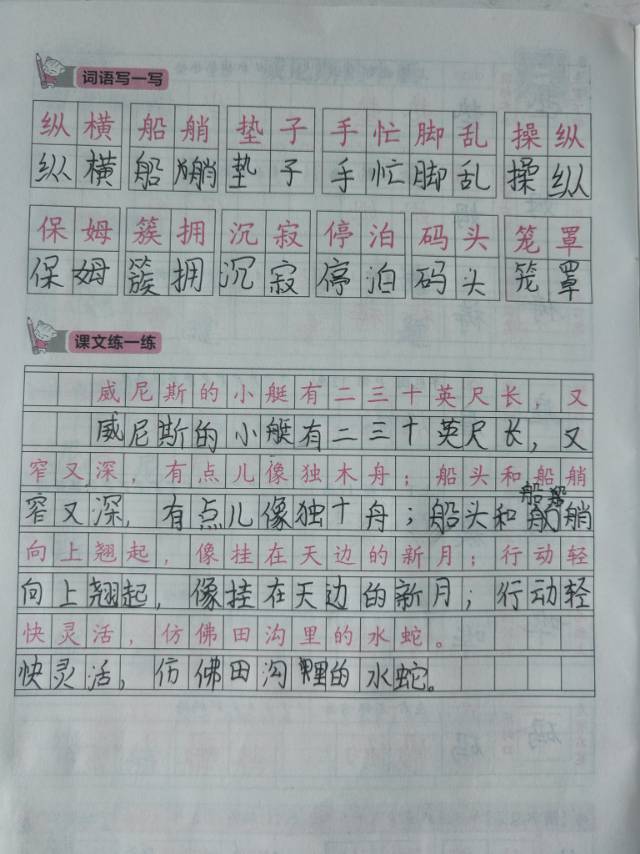 词语写一写
纵横 船艄 垫子 手忙脚乱 操纵
纵横 船艄 垫子 手忙脚乱 操纵
保姆 簇拥 沉寂 停泊 码头 笼罩
保姆 簇拥 沉寂 停泊 码头 笼罩
课文练一练
威尼斯的小艇有二三十英尺长，又
威尼斯的小艇有二三十英尺长，又
窄又深，有点儿像独木舟；船头和船艄
窄又深，有点儿像独十舟；船头和艄
向上翘起，像挂在天边的新月；行动轻
向上翘起，像挂在天边的新月；行动轻
快灵活，仿佛田沟里的水蛇。
快灵活，仿佛田沟里的水蛇。